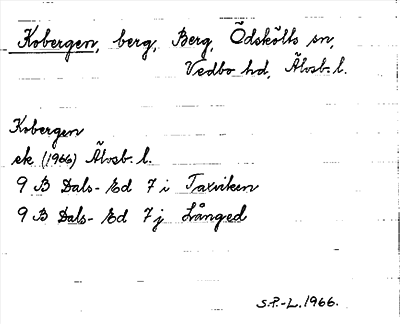 Kobergen, berg, Berg, Ödskölts sn,
Vedbo hd, Älvsb. l.
Kobergen
ek (1966) Älvsb. l.
9 B Dals-Ed 7 i Taxviken
9 B Dals-Ed 7 j Långed
S.P.-L. 1966.